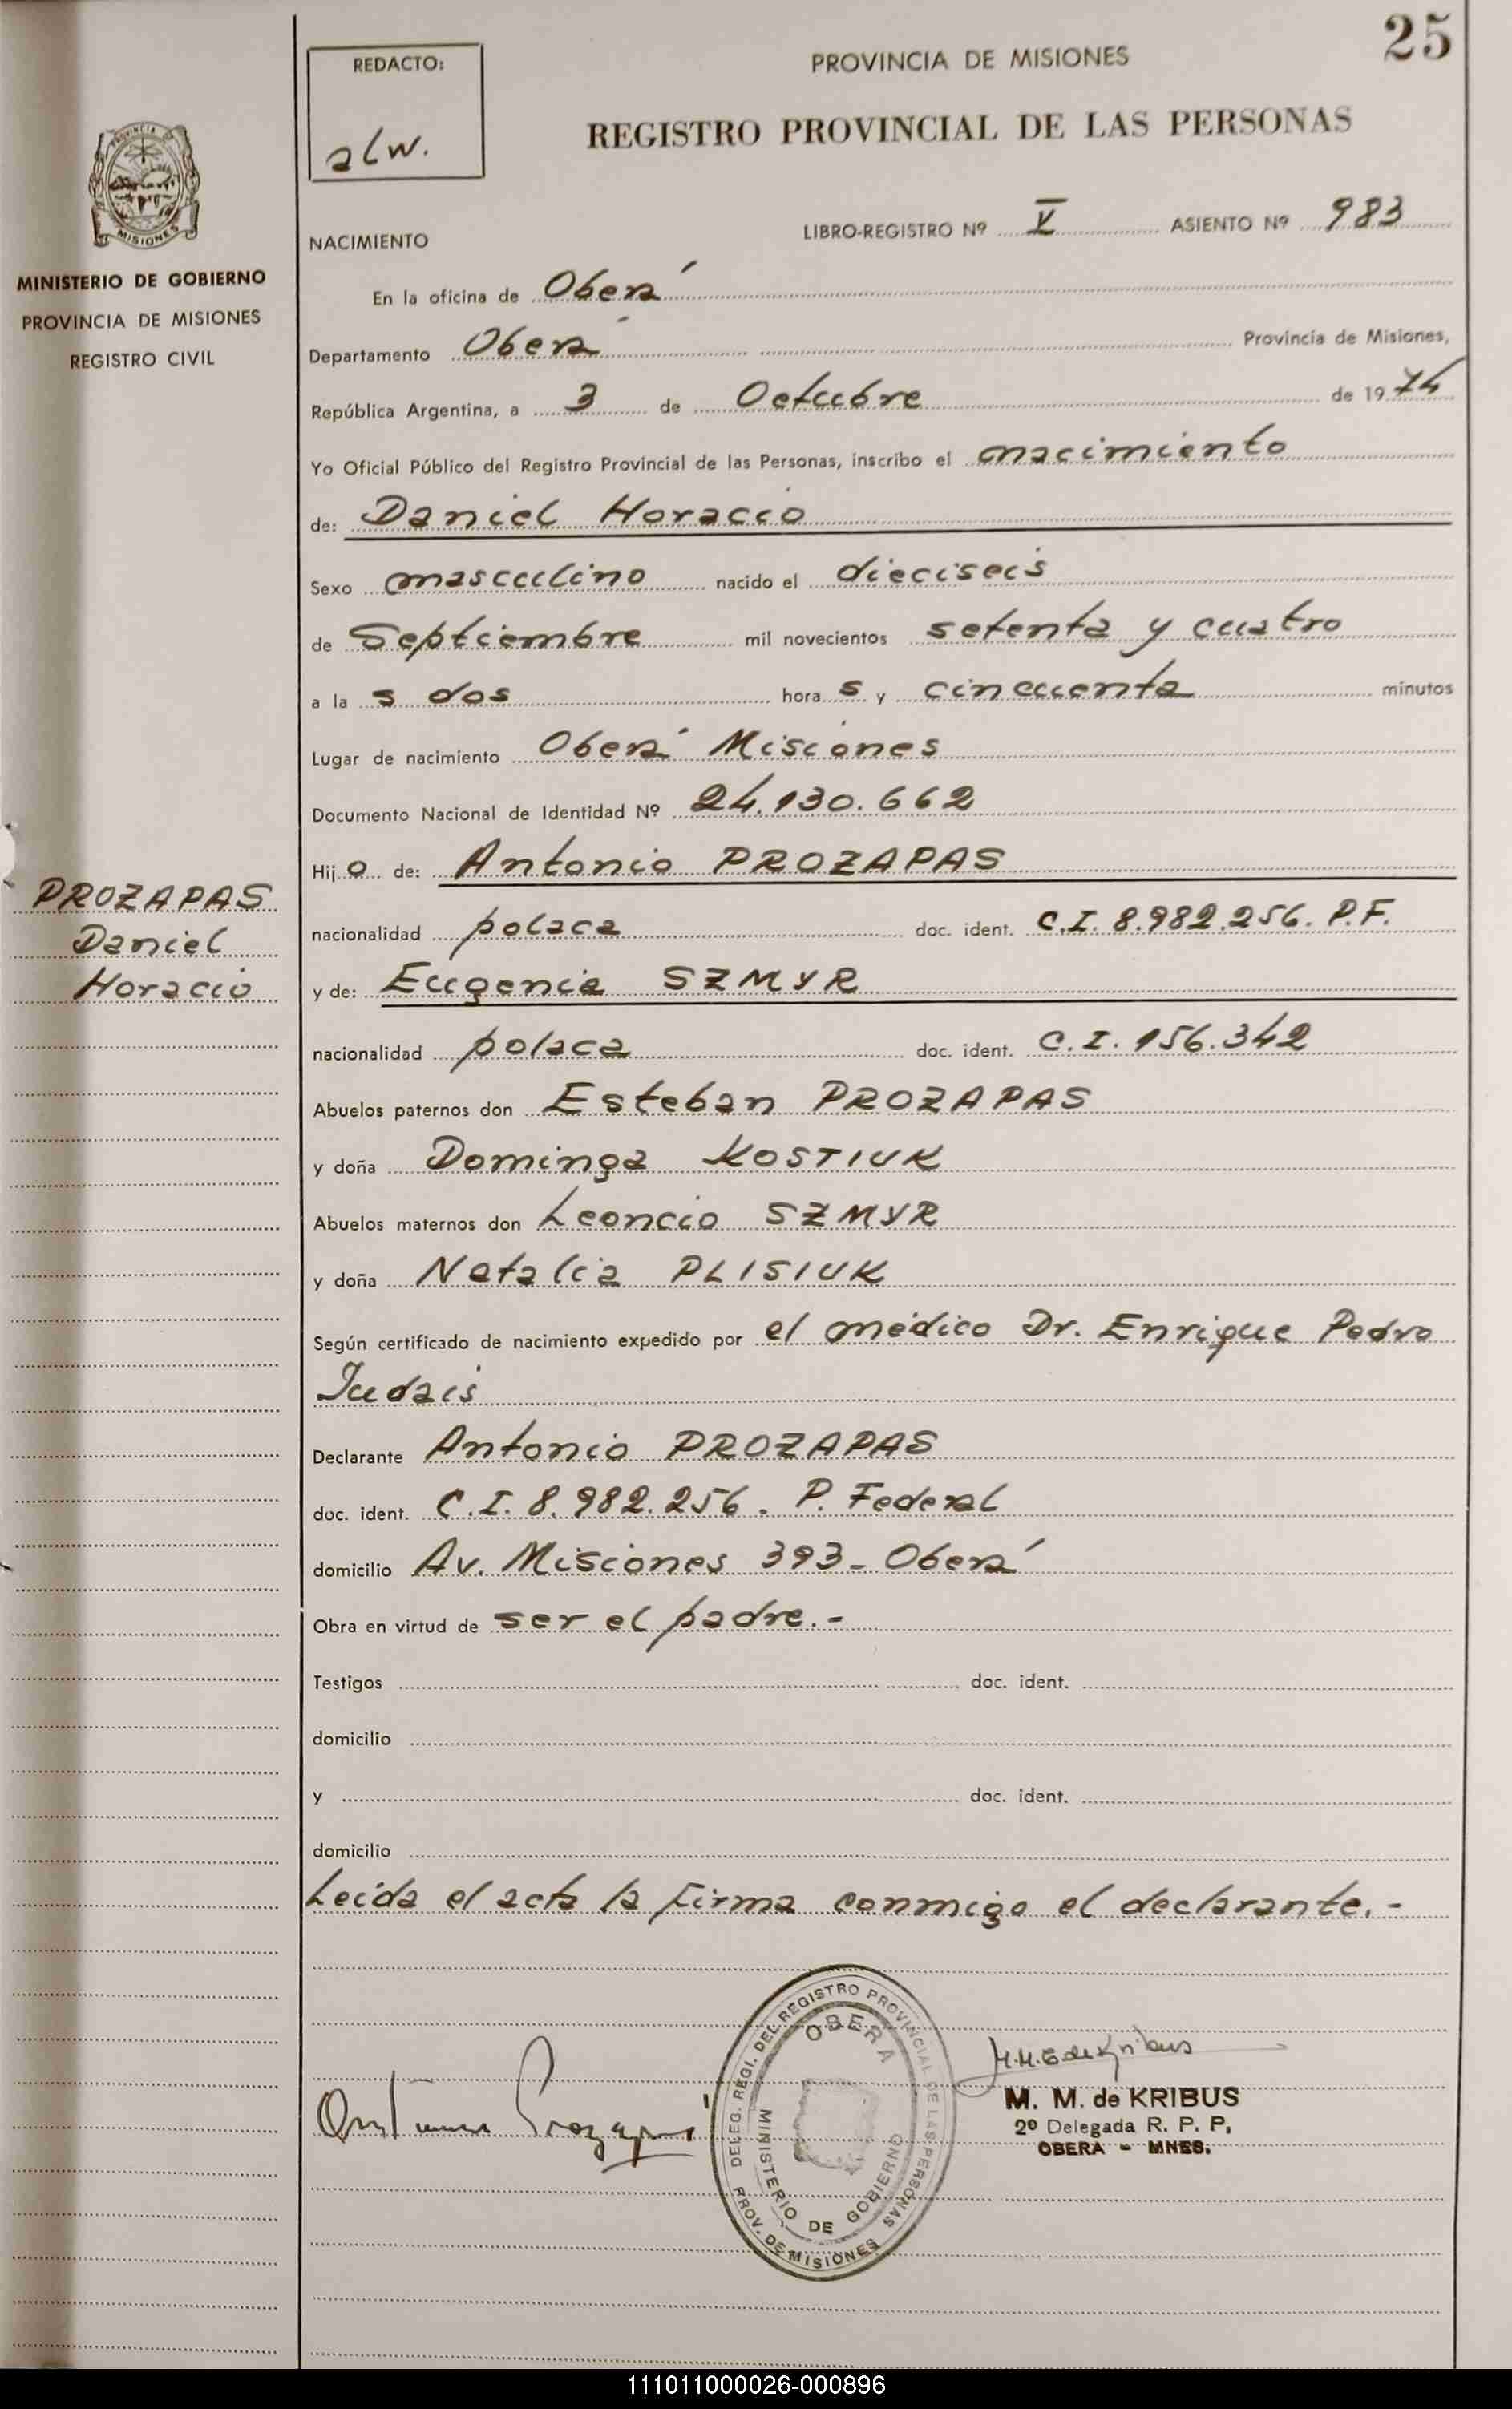 25
REDACTO:
alw.
PROVINCIA DE MISIONES
REGISTRO PROVINCIAL DE LAS PERSONAS
NACIMIENTO
LIBRO-REGISTRO Nº V ASIENTO Nº 983
MISIONES
MINISTERIO DE GOBIERNO
PROVINCIA DE MISIONES
REGISTRO CIVIL
En la oficina de Oberá
Departamento Oberá Provincia de Misiones,
República Argentina, a 3 de Octubre de 1974
Yo Oficial Público del Registro Provincial de las Personas, inscribo el nacimiento
de: Daniel Horacio
Sexo masculino nacido el dieciseis
de Septiembre mil novecientos setenta y cuatro
a la s dos hora s y cincuenta minutos
Lugar de nacimiento Oberá Misiones
Documento Nacional de Identidad Nº 24.130.662
Hij o de: Antonio PROZAPAS
PROZAPAS
Daniel
Horacio
nacionalidad polaca doc. ident. C.I. 8.982.256. P.F.
y de: Eugenia SZMYR
nacionalidad polaca doc. ident. C.I. 156.342
Abuelos paternos don Esteban PROZAPAS
y doña Dominga KOSTIUK
Abuelos maternos don Leoncio SZMYR
y doña Natalia PLISIUK
Según certificado de nacimiento expedido por el médico Dr. Enrique Pedro
Judais
Declarante Antonio PROZAPAS
doc. ident. C.I. 8.982.256. P. Federal
domicilio Av. Misiones 393 - Oberá
Obra en virtud de ser el padre.-
Testigos doc. ident.
domicilio
y doc. ident.
domicilio
Leida el acta la firma conmigo el declarante.-
DELEG. REGI. DEL REGISTRO PROVINCIAL DE LAS PERSONAS
OBERA
MINISTERIO DE GOBIERNO
PROV. DE MISIONES
M. M. de KRIBUS
2º Delegada R. P. P.
OBERA - MNES.
111011000026-000896